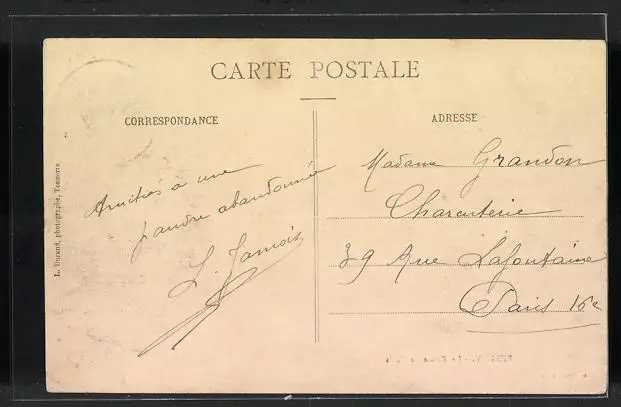 CARTE POSTALE
CORRESPONDANCE
ADRESSE
L. Durand, photographe, Tonnerre
Amitiés à une
pauvre abandonnée
L. Jamois
Madame Grandon
Charcuterie
39 Rue Lafontaine
Paris 16e